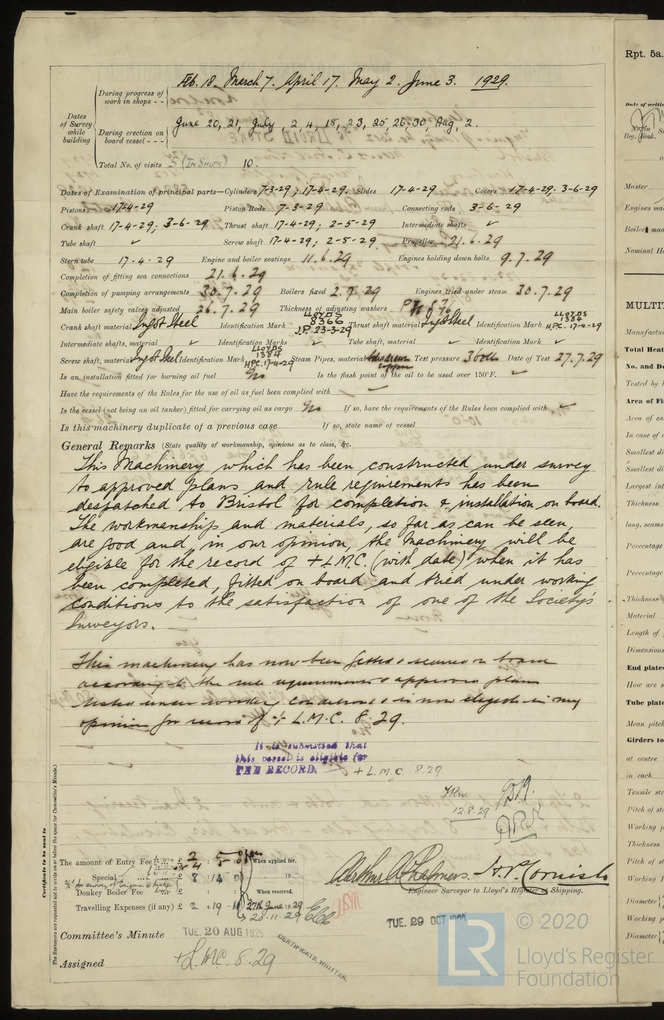 Feb. 18, March 7. April 17. May 2. June 3. 1929.
During progress of work in shops - -
Dates of Survey while building
During erection on board vessel - - -
June 20, 21, July 2, 4, 15, 23, 25, 26, 30, Aug. 2.
Total No. of visits 5 (In Shops) 10.
Dates of Examination of principal parts—Cylinders 7-3-29; 17-4-29. Slides 17-4-29. Covers 17-4-29. 3-6-29
Pistons 17-4-29 Piston Rods 7-3-29 Connecting rods 3-6-29
Crank shaft 17-4-29; 3-6-29 Thrust shaft 17-4-29; 2-5-29 Intermediate shafts ✓
Tube shaft ✓ Screw shaft 17-4-29; 2-5-29 Propeller 21.6.29
Stern tube 17-4-29 Engine and boiler seatings 11.6.29 Engines holding down bolts 9.7.29
Completion of fitting sea connections 21.6.29
Completion of pumping arrangements 30.7.29 Boilers fixed 2.7.29 Engines tried under steam 30.7.29
Main boiler safety valves adjusted 26.7.29 Thickness of adjusting washers
Crank shaft material Ingot Steel Identification Mark LLOYDS 8366 J.P. 23-3-29 Thrust shaft material Ingot Steel Identification Mark LLOYDS 1384 HPC. 17-4-29
Intermediate shafts, material ✓ Identification Marks ✓ Tube shaft, material ✓ Identification Mark ✓
Screw shaft, material Ingot Steel Identification Mark LLOYDS 1384 HPC. 17-4-29 Steam Pipes, material Test pressure 300 lb Date of Test 27.7.29
Is an installation fitted for burning oil fuel No Is the flash point of the oil to be used over 150°F. ✓
Have the requirements of the Rules for the use of oil as fuel been complied with ✓
Is the vessel (not being an oil tanker) fitted for carrying oil as cargo No If so, have the requirements of the Rules been complied with ✓
Is this machinery duplicate of a previous case If so, state name of vessel
General Remarks (State quality of workmanship, opinions as to class, &c.
This Machinery which has been constructed under survey
to approved plans and rule requirements has been
despatched to Bristol for completion & installation on board.
The workmanship and materials, so far as can be seen,
are good and, in our opinion, the machinery will be
eligible for the record of + L.M.C. (with date) when it has
been completed, fitted on board and tried under working
conditions to the satisfaction of one of the Society's
Surveyors.
This machinery has now been fitted & secured on board
according to the rule requirements & approved plans
tested under working conditions & is now eligible in my
opinion for record of + L.M.C. 8.29.
It is submitted that
this vessel is eligible for
THE RECORD. + L.M.C. 8.29
12.8.29
The amount of Entry Fee £ 2 : 5 : 0 When applied for,
Special £ 8 : 14 : 0
Donkey Boiler Fee £ When received,
Travelling Expenses (if any) £ 2 : 19 : 27th June 1929
20.11.29
Arthur A. Chalmers. H.P. Cornish
Engineer Surveyor to Lloyd's Register of Shipping.
Committee's Minute TUE. 20 AUG 1929
TUE. 29 OCT
Assigned + L.M.C. 8.29
CERTIFICATE WRITTEN
Certificate to be sent to
The Surveyors are requested not to write on or below the space for Committee's Minute.
Rpt. 5a.
Reg. Book.
Master
Engines ma
Boilers man
Nominal H
MULTI
Manufactur
Total Heat
No. and De
Tested by h
Area of Fi
Area of ea
In case of
Smallest di
Smallest di
Largest int
Thickness
long. seams
Percentage
Percentage
Thickness
Material
Length of
Dimensions
End plate
How are s
Tube plate
Mean pitch
Girders to
at centre
in each
Tensile str
Pitch of st
Working p
Thickness
Pitch of st
Working p
Diameter
Working p
Diameter
© 2020
LR
Lloyd's Register
Foundation